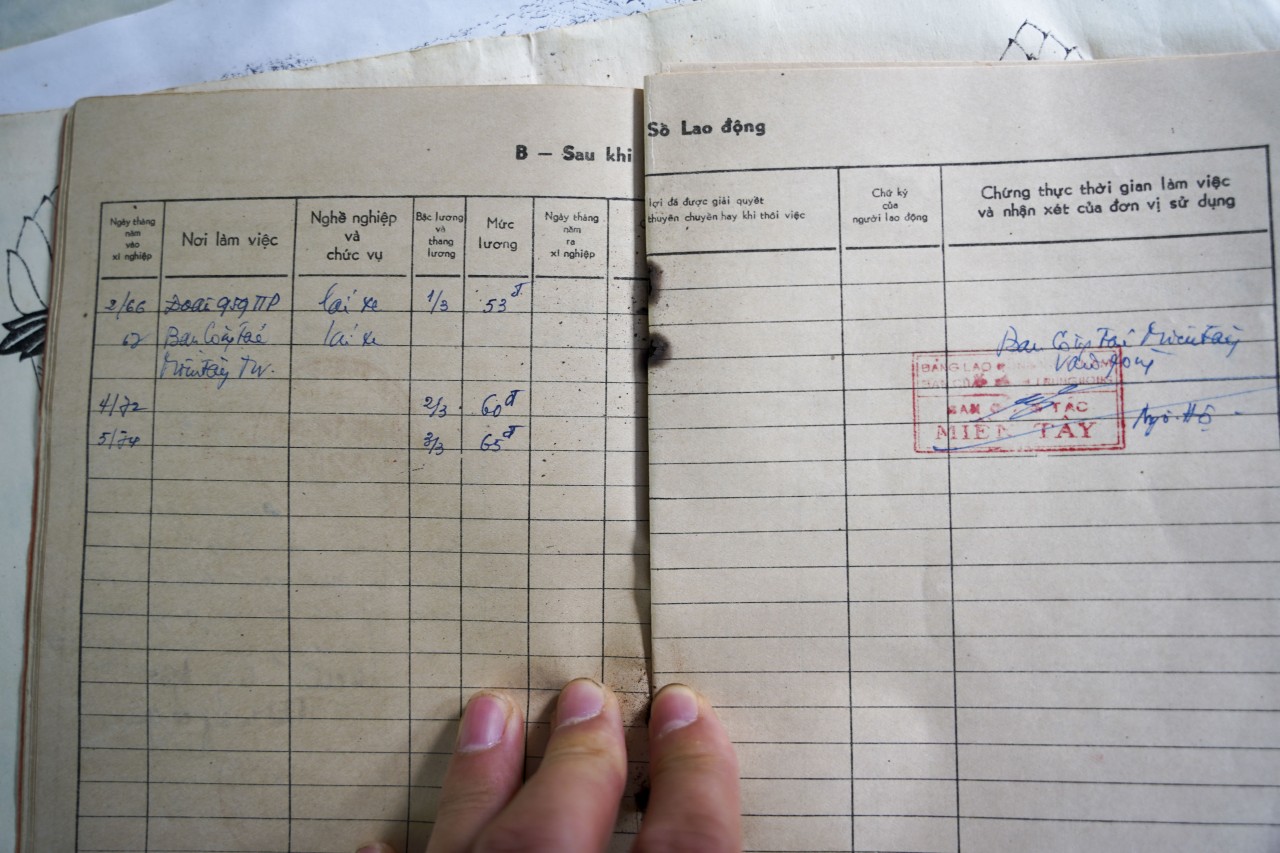 Sổ Lao động
B — Sau khi
Ngày tháng
năm
vào
xí nghiệp
Nơi làm việc
Nghề nghiệp
và
chức vụ
Bậc lương
và
thang
lương
Mức
lương
Ngày tháng
năm
ra
xí nghiệp
lợi đã được giải quyết
thuyên chuyển hay khi thôi việc
Chữ ký
của
người lao động
Chứng thực thời gian làm việc
và nhận xét của đơn vị sử dụng
2/66 Đoàn 959 lái xe 1/3 53đ
Ban Công tác lái xe
Miền Tây TW.
4/72 2/3 60đ
5/74 3/3 65đ
Ban Công tác Miền Tây
ĐẢNG LAO
BAN TÁC
MIỀN TÂY